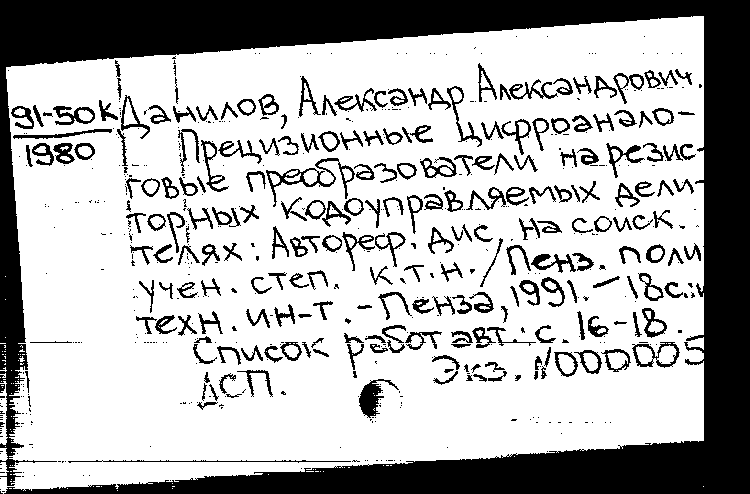 91-50К Данилов, Александр Александрович.
1980 Прецизионные цифроанало-
говые преобразователи на резис-
торных кодоуправляемых дели-
телях: Автореф. дис. на соиск.
учен. степ. к.т.н. / Пенз. поли
техн. ин-т. - Пенза, 1991. - 18с.:и
Список работ авт.: с. 16-18.
ДСП. Экз. N000005